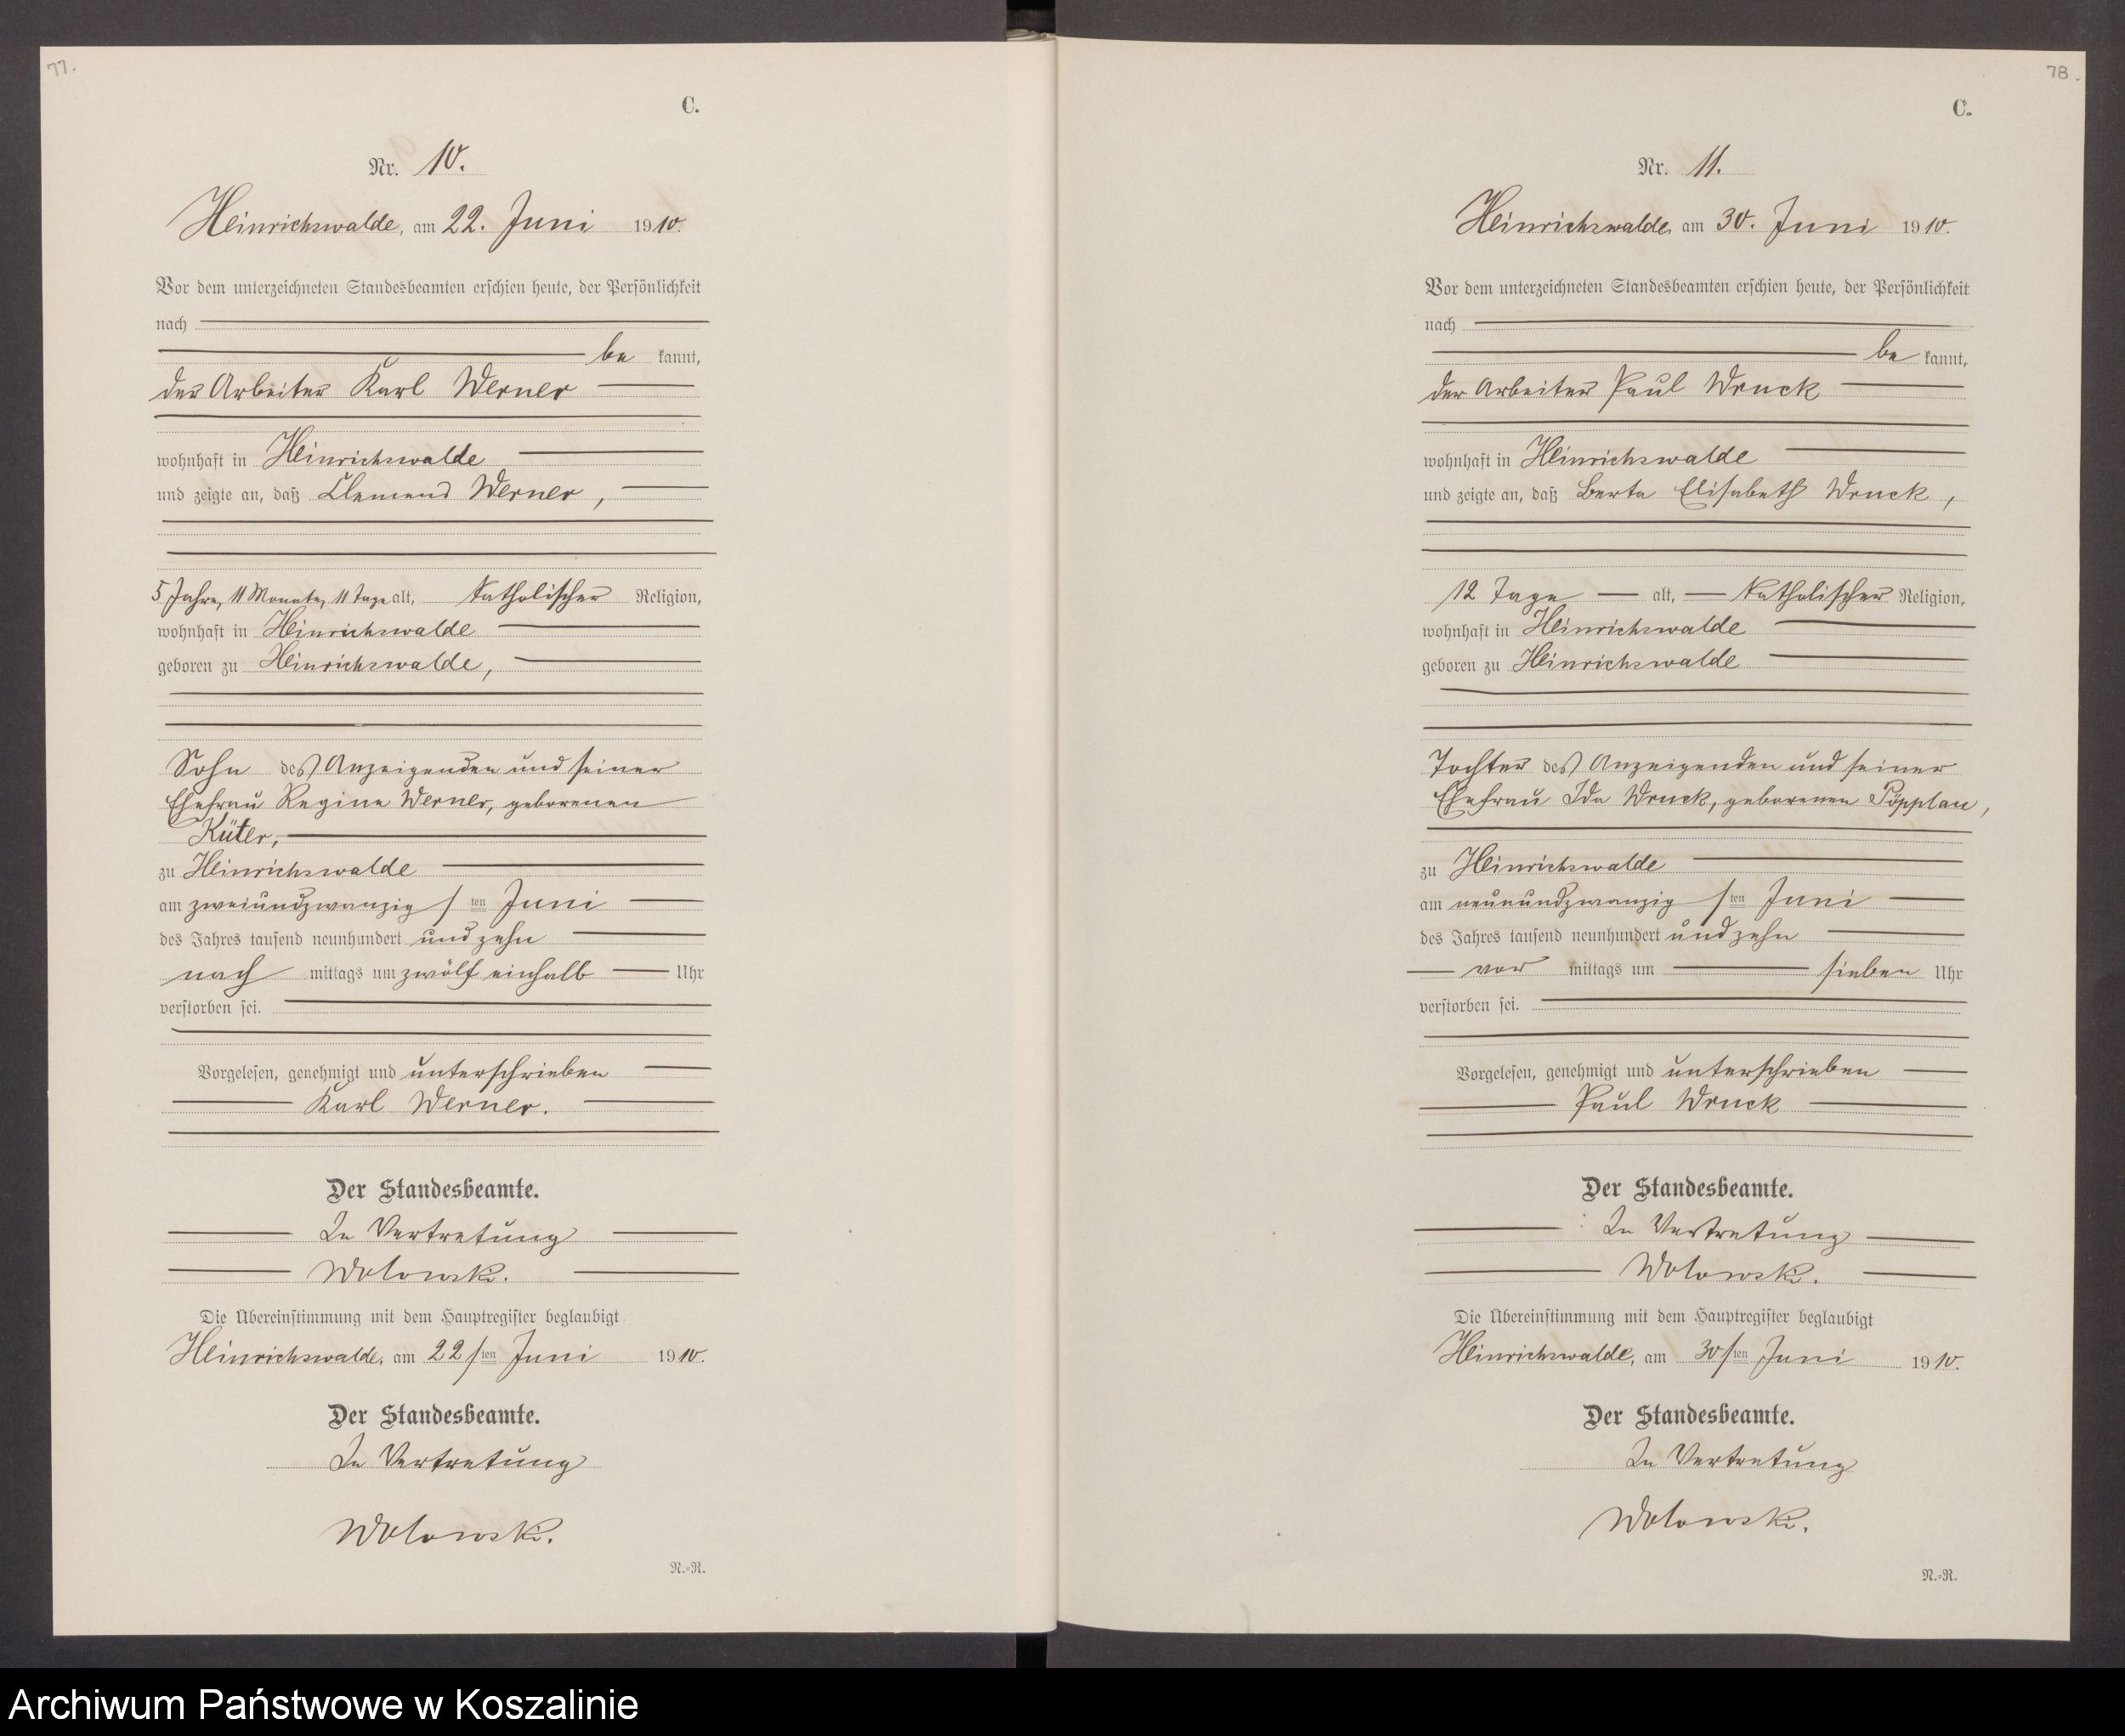 77.
C.
Nr. 10.
Heinrichswalde, am 22. Juni 1910.
Vor dem unterzeichneten Standesbeamten erschien heute, der Persönlichkeit
nach
be kannt,
der Arbeiter Karl Werner
wohnhaft in Heinrichswalde
und zeigte an, daß Clemens Werner,
5 Jahre, 11 Monate, 11 Tage alt, katholischer Religion,
wohnhaft in Heinrichswalde
geboren zu Heinrichswalde,
Sohn des Anzeigenden und seiner
Ehefrau Regine Werner, geborenen
Küter,
zu Heinrichswalde
am zweiundzwanzig ten Juni
des Jahres tausend neunhundert und zehn
nach mittags um zwölf einhalb Uhr
verstorben sei.
Vorgelesen, genehmigt und unterschrieben
Karl Werner.
Der Standesbeamte.
In Vertretung
Wolowski.
Die Übereinstimmung mit dem Hauptregister beglaubigt
Heinrichswalde, am 22 ten Juni 1910.
Der Standesbeamte.
In Vertretung
Wolowski.
N.=R.
78.
C.
Nr. 11.
Heinrichswalde, am 30. Juni 1910.
Vor dem unterzeichneten Standesbeamten erschien heute, der Persönlichkeit
nach
be kannt,
der Arbeiter Paul Wruck
wohnhaft in Heinrichswalde
und zeigte an, daß Berta Elisabeth Wruck,
12 Tage alt, katholischer Religion,
wohnhaft in Heinrichswalde
geboren zu Heinrichswalde
Tochter des Anzeigenden und seiner
Ehefrau Ida Wruck, geborenen Pöpplau,
zu Heinrichswalde
am neunundzwanzig ten Juni
des Jahres tausend neunhundert und zehn
vor mittags um sieben Uhr
verstorben sei.
Vorgelesen, genehmigt und unterschrieben
Paul Wruck
Der Standesbeamte.
In Vertretung
Wolowski.
Die Übereinstimmung mit dem Hauptregister beglaubigt
Heinrichswalde, am 30 ten Juni 1910.
Der Standesbeamte.
In Vertretung
Wolowski.
N.=R.
Archiwum Państwowe w Koszalinie